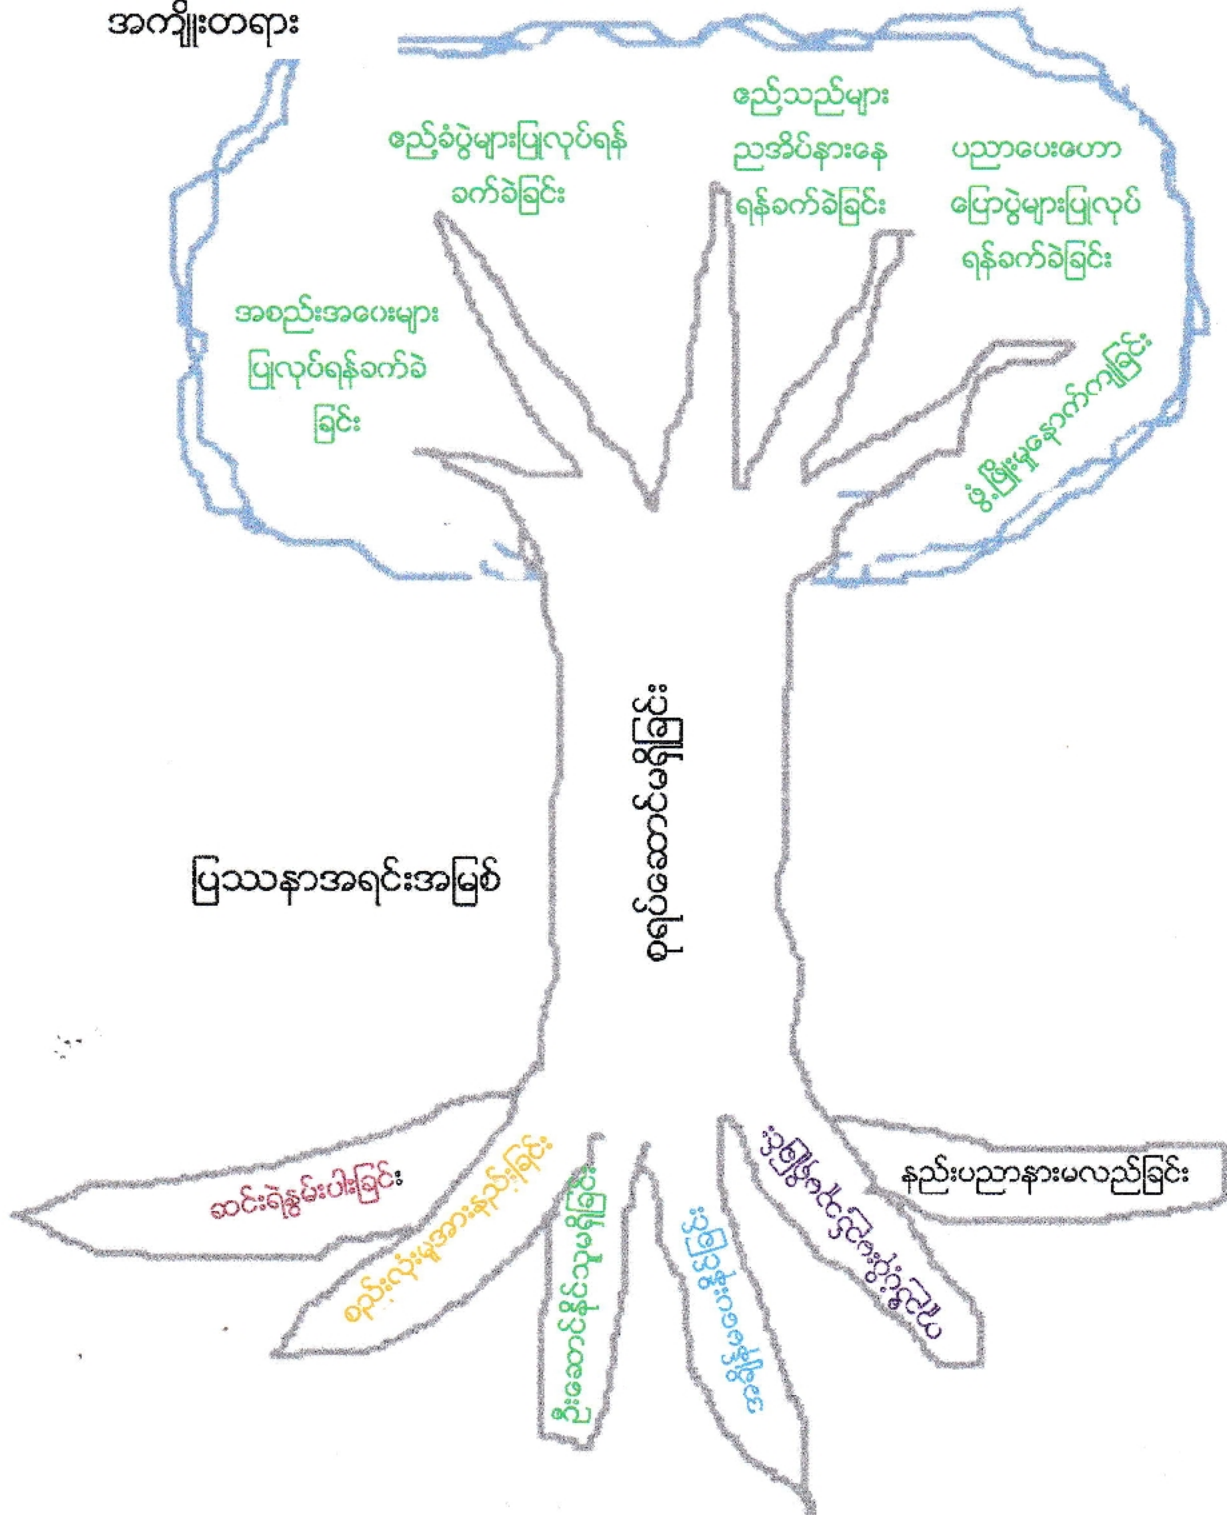 အကျိုးတရား
ဧည့်ခံပွဲများပြုလုပ်ရန်
ခက်ခဲခြင်း
ဧည့်သည်များ
ညအိပ်နားနေ
ရန်ခက်ခဲခြင်း
ပညာပေးဟော
ပြောပွဲများပြုလုပ်
ရန်ခက်ခဲခြင်း
အစည်းအဝေးများ
ပြုလုပ်ရန်ခက်ခဲ
ခြင်း
ဖွံ့ဖြိုးမှုနောက်ကျခြင်း
စုရပ်ဆောင်မရှိခြင်း
ပြဿနာအရင်းအမြစ်
ဆင်းရဲနွမ်းပါးခြင်း
စည်းလုံးမှုအားနည်းခြင်း
ဦးဆောင်နိုင်သူမရှိခြင်း
နည်းပညာနားမလည်ခြင်း